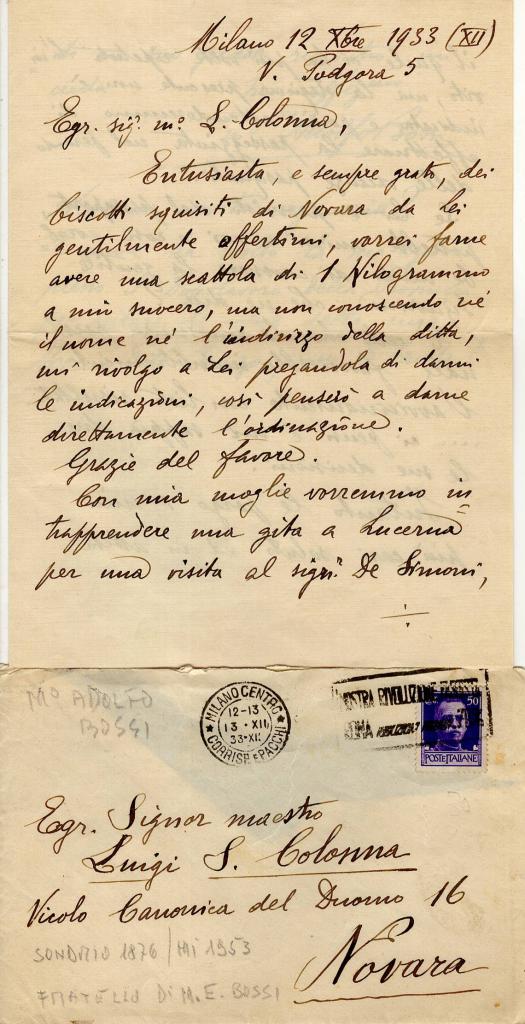 Milano 12 Xbre 1933 (XII)
V. Podgora 5
Egr. sigr. mo. L. Colonna,
Entusiasta, e sempre grato, dei
biscotti squisiti di Novara da Lei
gentilmente offertimi, vorrei farne
avere una scattola di 1 Kilogrammo
a mio suocero, ma non conoscendo nè
il nome né l'indirizzo della ditta,
mi rivolgo a Lei pregandola di darmi
le indicazioni, così penserò a darne
direttamente l'ordinazione.
Grazie del favore.
Con mia moglie vorremmo in=
trapprendere una gita a Lucerna
per una visita al sigri. De Simoni,
Mo ADOLFO
BOSSI
MILANO CENTRO
12-13
13 · XII
33·XII
CORRISP. E PACCHI
MOSTRA RIVOLUZIONE
ROMA
50
POSTE ITALIANE
Egr. Signor maestro
Luigi S. Colonna
Vicolo Canonica del Duomo 16
Novara
SONDRIO 1876 / MI 1953
FRATELLO DI M. E. BOSSI